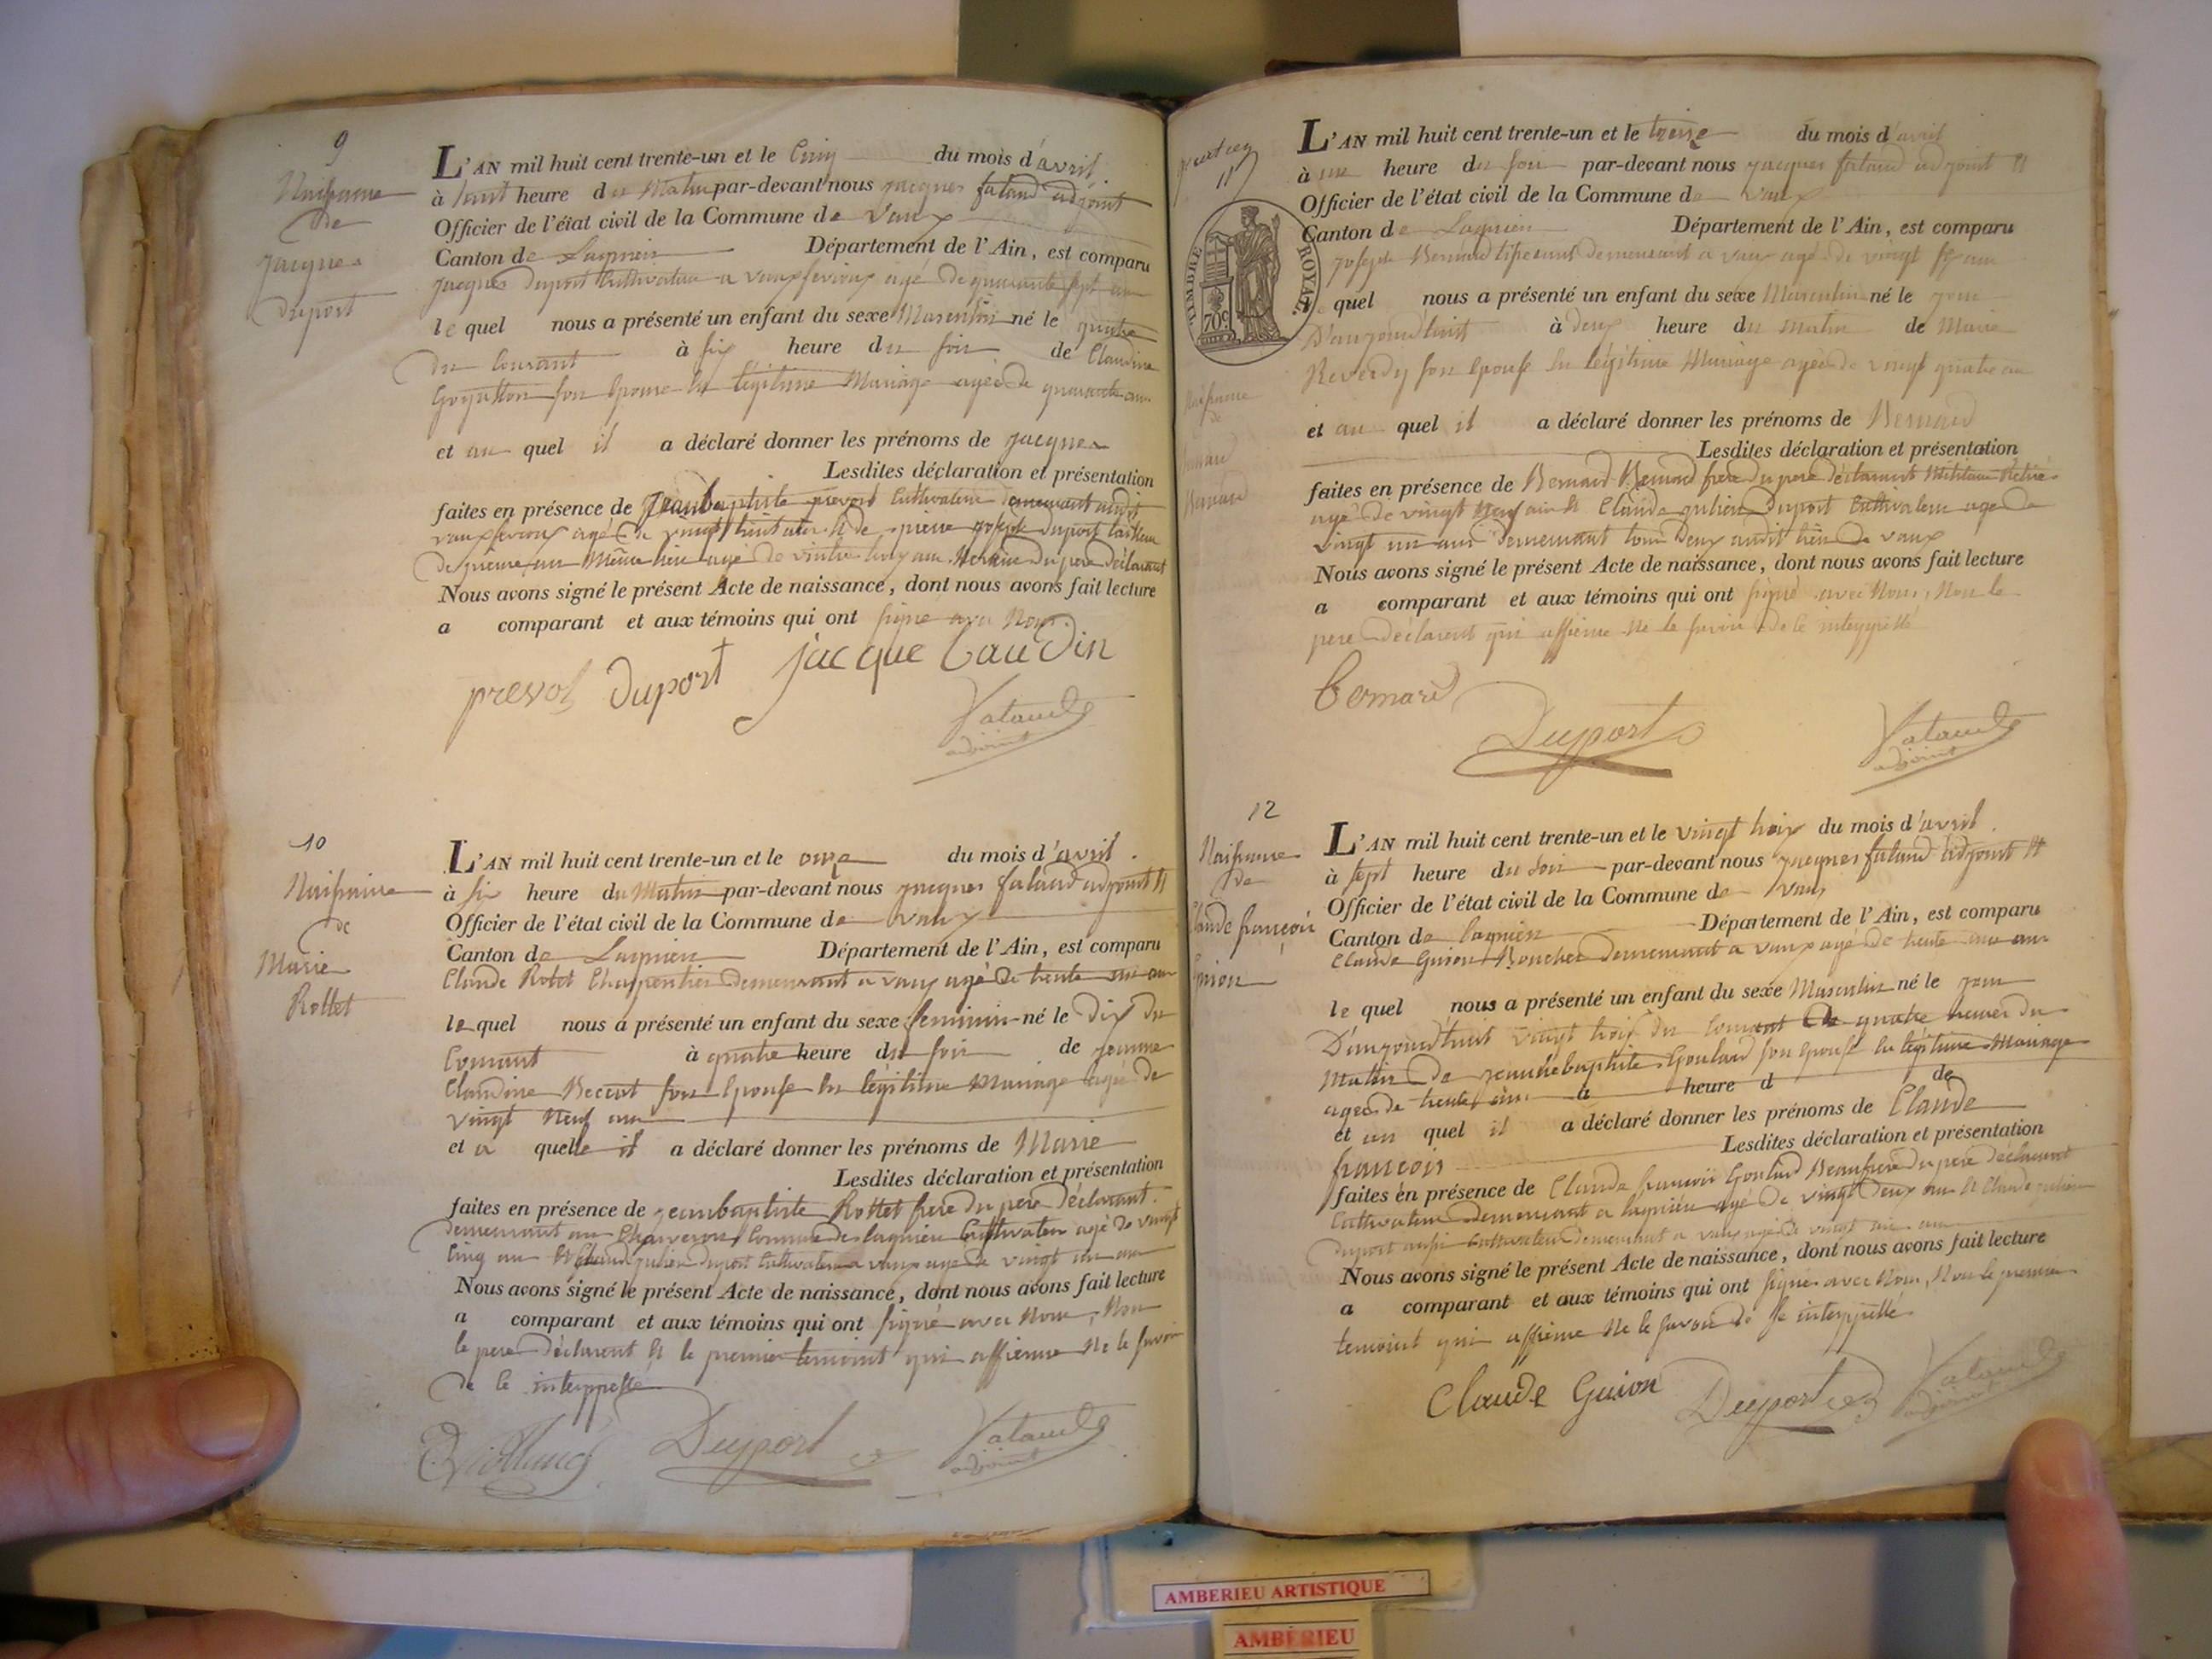 9
Naissance
de
Jacques
Duport
L'AN mil huit cent trente-un et le Cinq du mois d'avril
à huit heure du Matin par-devant nous jacques fataud adjoint
Officier de l'état civil de la Commune de Vaux
Canton de Lagnieu Département de l'Ain, est comparu
jacques Duport Cultivateur a vaux agé de quarante sept ans
le quel nous a présenté un enfant du sexe Masculin né le quatre
du Courant à six heure du soir de Claudine
son Epouse En légitime Mariage agée de quarante ans
et au quel il a déclaré donner les prénoms de jacques
Lesdites déclaration et présentation
faites en présence de jeanbaptiste prevost Cultivateur demeurant audit
agé de vingt huit ans & de pierre joseph Duport tailleur
de pierre au Même lieu agé de trois ans du pere Déclarant
Nous avons signé le présent Acte de naissance, dont nous avons fait lecture
a comparant et aux témoins qui ont signé avec Nous
prevost Duport jacque Baudin
fataud
adjoint
10
Naissance
de
Marie
Rottet
L'AN mil huit cent trente-un et le onze du mois d'avril.
à six heure du Matin par-devant nous jacques fataud adjoint &
Officier de l'état civil de la Commune de vaux
Canton de Lagnieu Département de l'Ain, est comparu
Claude Rotet Charpentier demeurant a vaux agé de trente un ans
le quel nous a présenté un enfant du sexe feminin né le Dix du
Courant à quatre heure du soir de jeanne
Claudine son Epouse En légitime Mariage agée de
vingt Neuf ans
et a quelle il a déclaré donner les prénoms de Marie
Lesdites déclaration et présentation
faites en présence de jeanbaptiste Rottet frere du pere Déclarant
demeurant au Commune de lagnieu Cultivateur agé de vingt
Cinq ans & Claude julien Duport Cultivateur a vaux agé de vingt un ans
Nous avons signé le présent Acte de naissance, dont nous avons fait lecture
a comparant et aux témoins qui ont signé avec Nous, Non
le pere Déclarent & le premier temoint qui affirme Ne le savoir
de le interppellé
Duport fataud
adjoint
11
TIMBRE ROYAL
70c
Naissance
de
Bernard
Bernard
L'AN mil huit cent trente-un et le treize du mois d'avril
à une heure du soir par-devant nous jacques fataud adjoint &
Officier de l'état civil de la Commune de Vaux
Canton de Lagnieu Département de l'Ain, est comparu
joseph Bernard tisserant demeurant a vaux agé de vingt six ans
le quel nous a présenté un enfant du sexe Masculin né le jour
D'aujourd'huit à deux heure du matin de Marie
Reverdy son Epouse En légitime Mariage agée de vingt quatre ans
et au quel il a déclaré donner les prénoms de Bernard
Lesdites déclaration et présentation
faites en présence de Bernard Bernard frere du pere Déclarant Militaire Retiré
agé de vingt Neuf ans & Claude julien Duport Cultivateur agé de
vingt un ans demeurant tous Deux audit lieu de vaux
Nous avons signé le présent Acte de naissance, dont nous avons fait lecture
a comparant et aux témoins qui ont signé avec Nous, Non le
pere Déclarent qui affirme Ne le savoir de le interppellé
Bernard
Duport
fataud
adjoint
12
Naissance
de
Claude françois
Guion
L'AN mil huit cent trente-un et le vingt trois du mois d'avril.
à sept heure du Soir par-devant nous jacques fataud adjoint &
Officier de l'état civil de la Commune de Vaux
Canton de lagnieu Département de l'Ain, est comparu
Claude Guion Boucher demeurant a vaux agé de trente un ans
le quel nous a présenté un enfant du sexe Masculin né le jour
D'aujourd'huit vingt trois du Courant a quatre heures du
Matin de jeannebaptiste Goulard son Epouse En légitime Mariage
agée de trente ans à heure d de
et au quel il a déclaré donner les prénoms de Claude
françois Lesdites déclaration et présentation
faites en présence de Claude françois Goulard Beaufrere du pere Déclarant
Cultivateur demeurant a lagnieu agé de vingt Deux ans & Claude julien
Duport aussi Cultivateur Demeurant a vaux agé de vingt un ans
Nous avons signé le présent Acte de naissance, dont nous avons fait lecture
a comparant et aux témoins qui ont signé avec Nous, Non le premier
temoint qui affirme Ne le savoir de le interppellé
Claude Guion Duport fataud
adjoint
AMBERIEU ARTISTIQUE
AMBERIEU